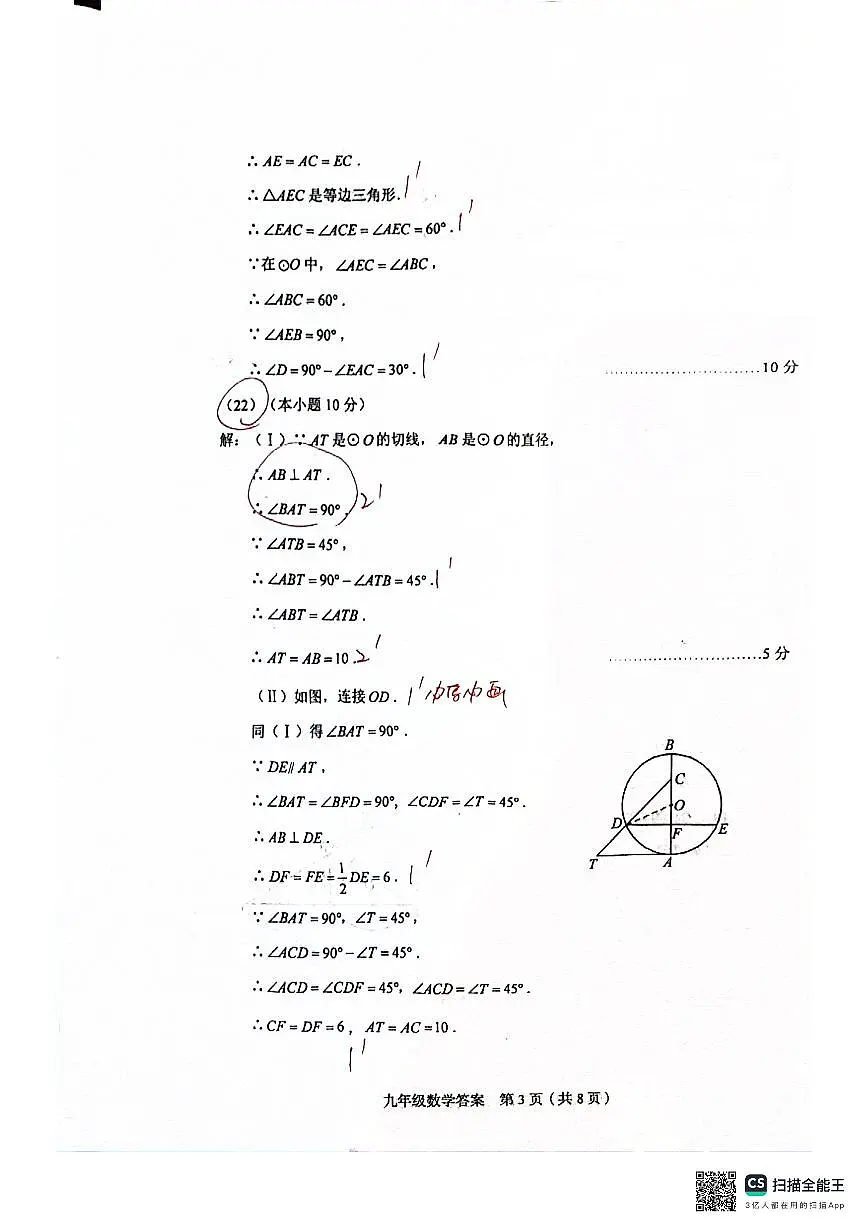 ∴ AE = AC = EC .
∴ △AEC 是等边三角形. 1'
∴ ∠EAC = ∠ACE = ∠AEC = 60° . 1'
∵在⊙O 中，∠AEC = ∠ABC ,
∴ ∠ABC = 60° .
∵ ∠AEB = 90° ,
∴ ∠D = 90° − ∠EAC = 30° . 1' ..............................10 分
（22）（本小题 10 分）
解：（Ⅰ）∵ AT 是⊙O 的切线，AB 是⊙O 的直径，
∴ AB ⊥ AT .
∴ ∠BAT = 90° . 2'
∵ ∠ATB = 45° ,
∴ ∠ABT = 90° − ∠ATB = 45° . 1'
∴ ∠ABT = ∠ATB .
∴ AT = AB = 10 . 2' ..............................5 分
（Ⅱ）如图，连接 OD . 1'
同（Ⅰ）得 ∠BAT = 90° .
∵ DE∥AT ,
∴ ∠BAT = ∠BFD = 90°, ∠CDF = ∠T = 45° .
∴ AB ⊥ DE .
∴ DF = FE = 1/2 DE = 6 . 1'
∵ ∠BAT = 90°, ∠T = 45° ,
∴ ∠ACD = 90° − ∠T = 45° .
∴ ∠ACD = ∠CDF = 45°, ∠ACD = ∠T = 45° .
∴ CF = DF = 6 , AT = AC = 10 .
1'
B
C
O
D
F
E
T
A
九年级数学答案 第 3 页（共 8 页）
CS 扫描全能王
3亿人都在用的扫描App